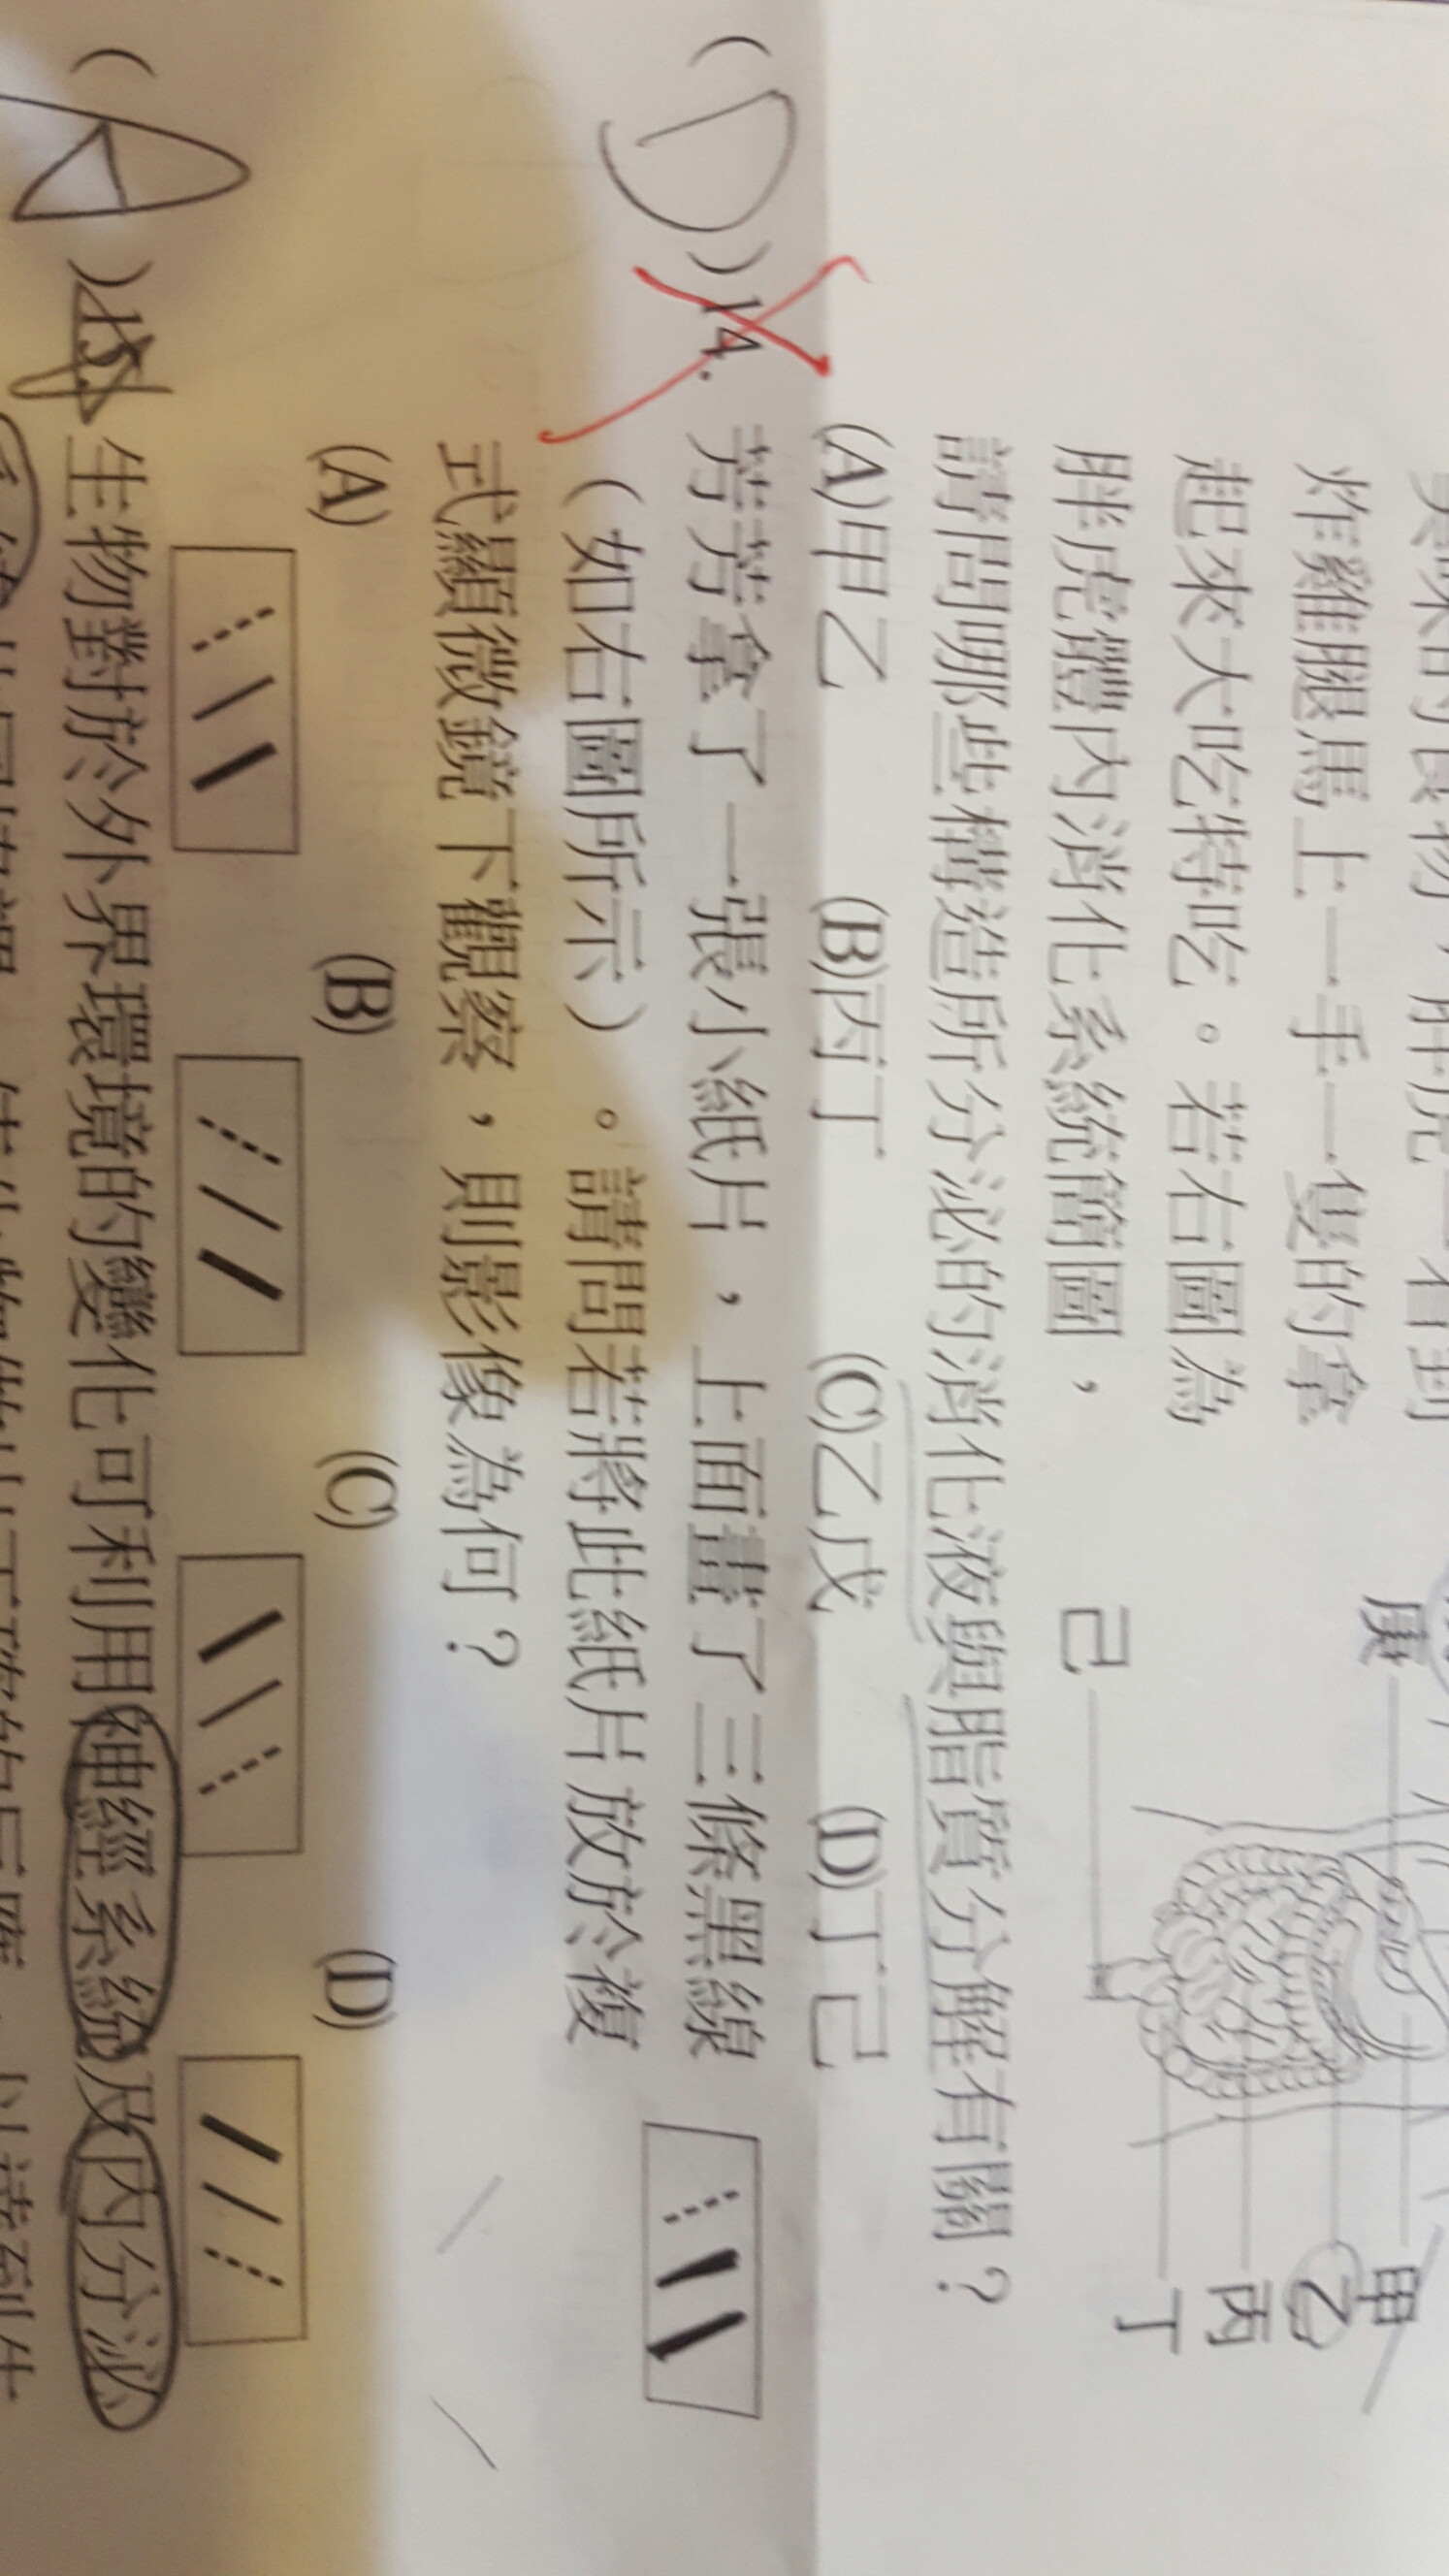 炸雞腿馬上一手一隻的拿
起來大吃特吃。若右圖為
胖虎體內消化系統簡圖，
請問哪些構造所分泌的消化液與脂質分解有關？
庚
己
甲
乙
丙
丁
(A)甲乙 (B)丙丁 (C)乙戊 (D)丁己
(D)14. 芳芳拿了一張小紙片，上面畫了三條黑線
（如右圖所示）。請問若將此紙片放於複
式顯微鏡下觀察，則影像為何？
(A) (B) (C) (D)
(A)15. 生物對於外界環境的變化可利用神經系統及內分泌